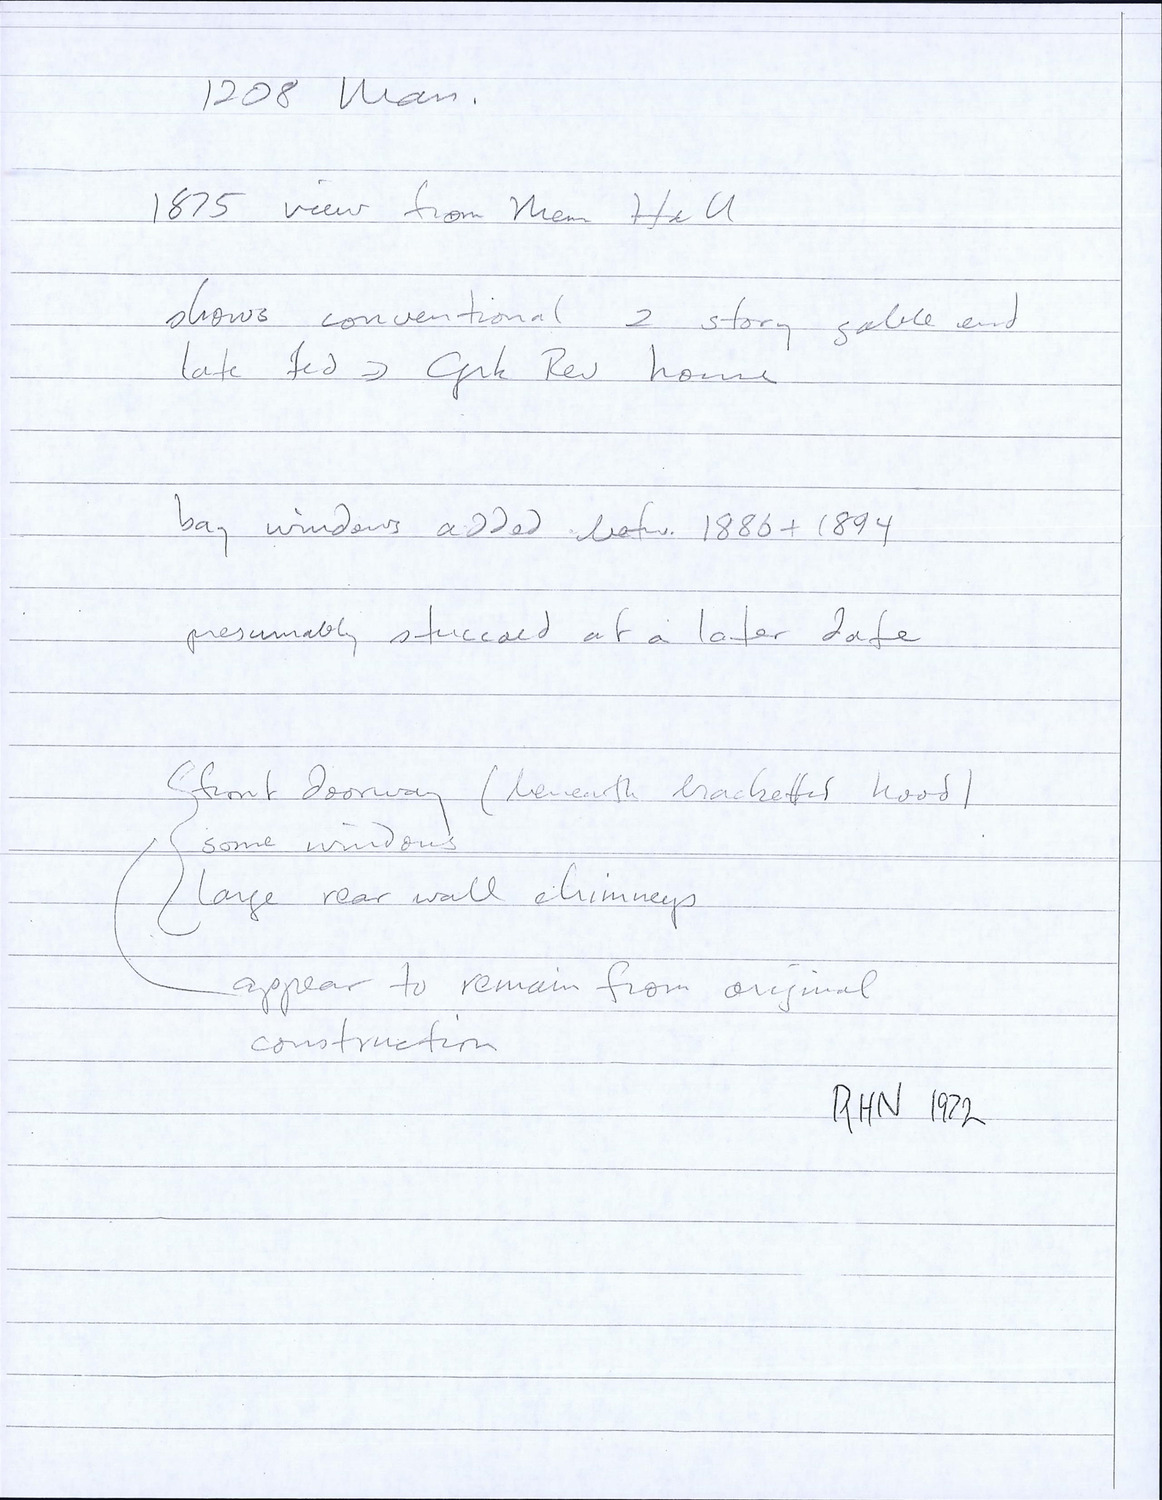 1208 Mass.
1875 view from Mem Hall
shows conventional 2 story gable end
late fed => Grk Rev house
bay windows added betw. 1886 + 1894
presumably stuccoed at a later date
front doorway (beneath bracketed hood)
some windows
large rear wall chimneys
appear to remain from original
construction
RHN 1972